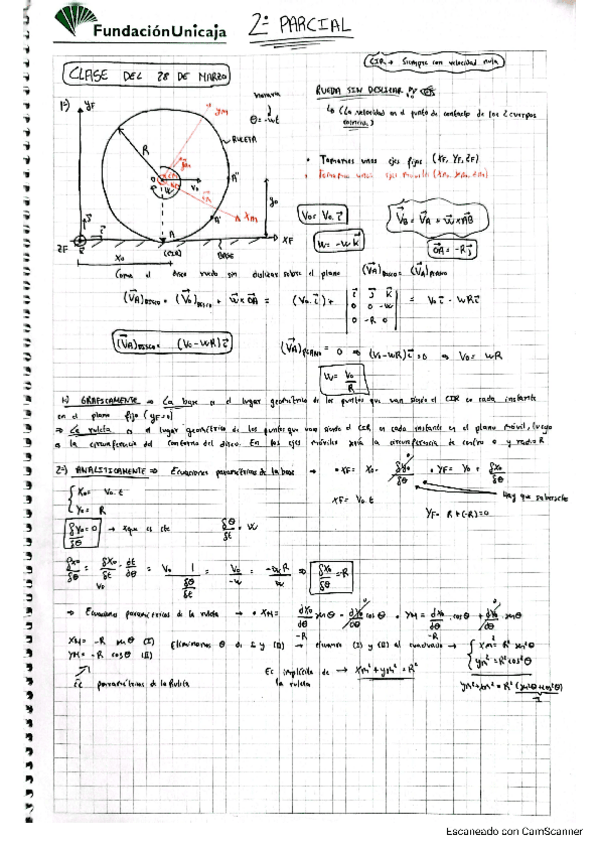 FundaciónUnicaja
2º PARCIAL
CIR → Siempre con velocidad nula
CLASE DEL 28 DE MARZO
1º)
YF
θ = -wt
RULETA
R
V0
A
(CIR)
BASE
XF
ZF
X0
Y0
RUEDA SIN DESLIZAR
(La velocidad en el punto de contacto de los 2 cuerpos
• Tomamos unos ejes fijos (XF, YF, ZF)
V0 = V0·i
W = -W K
VB = VA + W×AB
OA = -R j
Como el disco rueda sin deslizar sobre el plano (VA)DISCO = (VA)PLANO
(VA)DISCO = (V0)DISCO + W×OA = (V0·i) + | i j k ; 0 0 -w ; 0 -R 0 | = V0 i - WR i
(VA)DISCO = (V0 - WR) i
(VA)PLANO = 0 ⇒ (V0 - WR) i = 0 ⇒ V0 = WR
W = V0/R
1) GRÁFICAMENTE ⇒ La base es el lugar geométrico de los puntos que van siendo el CIR en cada instante
en el plano fijo (YF=0)
⇒ La ruleta es el lugar geométrico de los puntos que van siendo el CIR en cada instante en el plano móvil, luego
es la circunferencia del contorno del disco. En los ejes móviles sería la circunferencia de centro O y radio R
2º) ANALÍTICAMENTE ⇒ Ecuaciones paramétricas de la base → • XF = X0 - δY0/δθ • YF = Y0 + δX0/δθ
X0 = V0·t
Y0 = R
XF = V0·t
Hay que saberselo
YF = R + (-R) = 0
δY0 = 0 → xque es cte
δX0/δθ = δX0/δt · δt/δθ = V0 · 1/(δθ/δt) = V0/-W = -WR/W ⇒ δX0/δθ = -R
⇒ Ecuaciones paramétricas de la ruleta → • XM = dX0/dθ senθ - dY0/dθ cosθ • YM = dX0/dθ cosθ + dY0/dθ senθ
XM = -R senθ (I) Eliminamos θ de I y (II) → elevamos (I) y (II) al cuadrado → xm² = R² sen²θ
YM = -R cosθ (II)
ym² = R² cos²θ
Ec paramétricas de la Ruleta
Ec implícita de la ruleta → xm² + ym² = R²
ym² + xm² = R² (sen²θ + cos²θ)
1
Escaneado con CamScanner